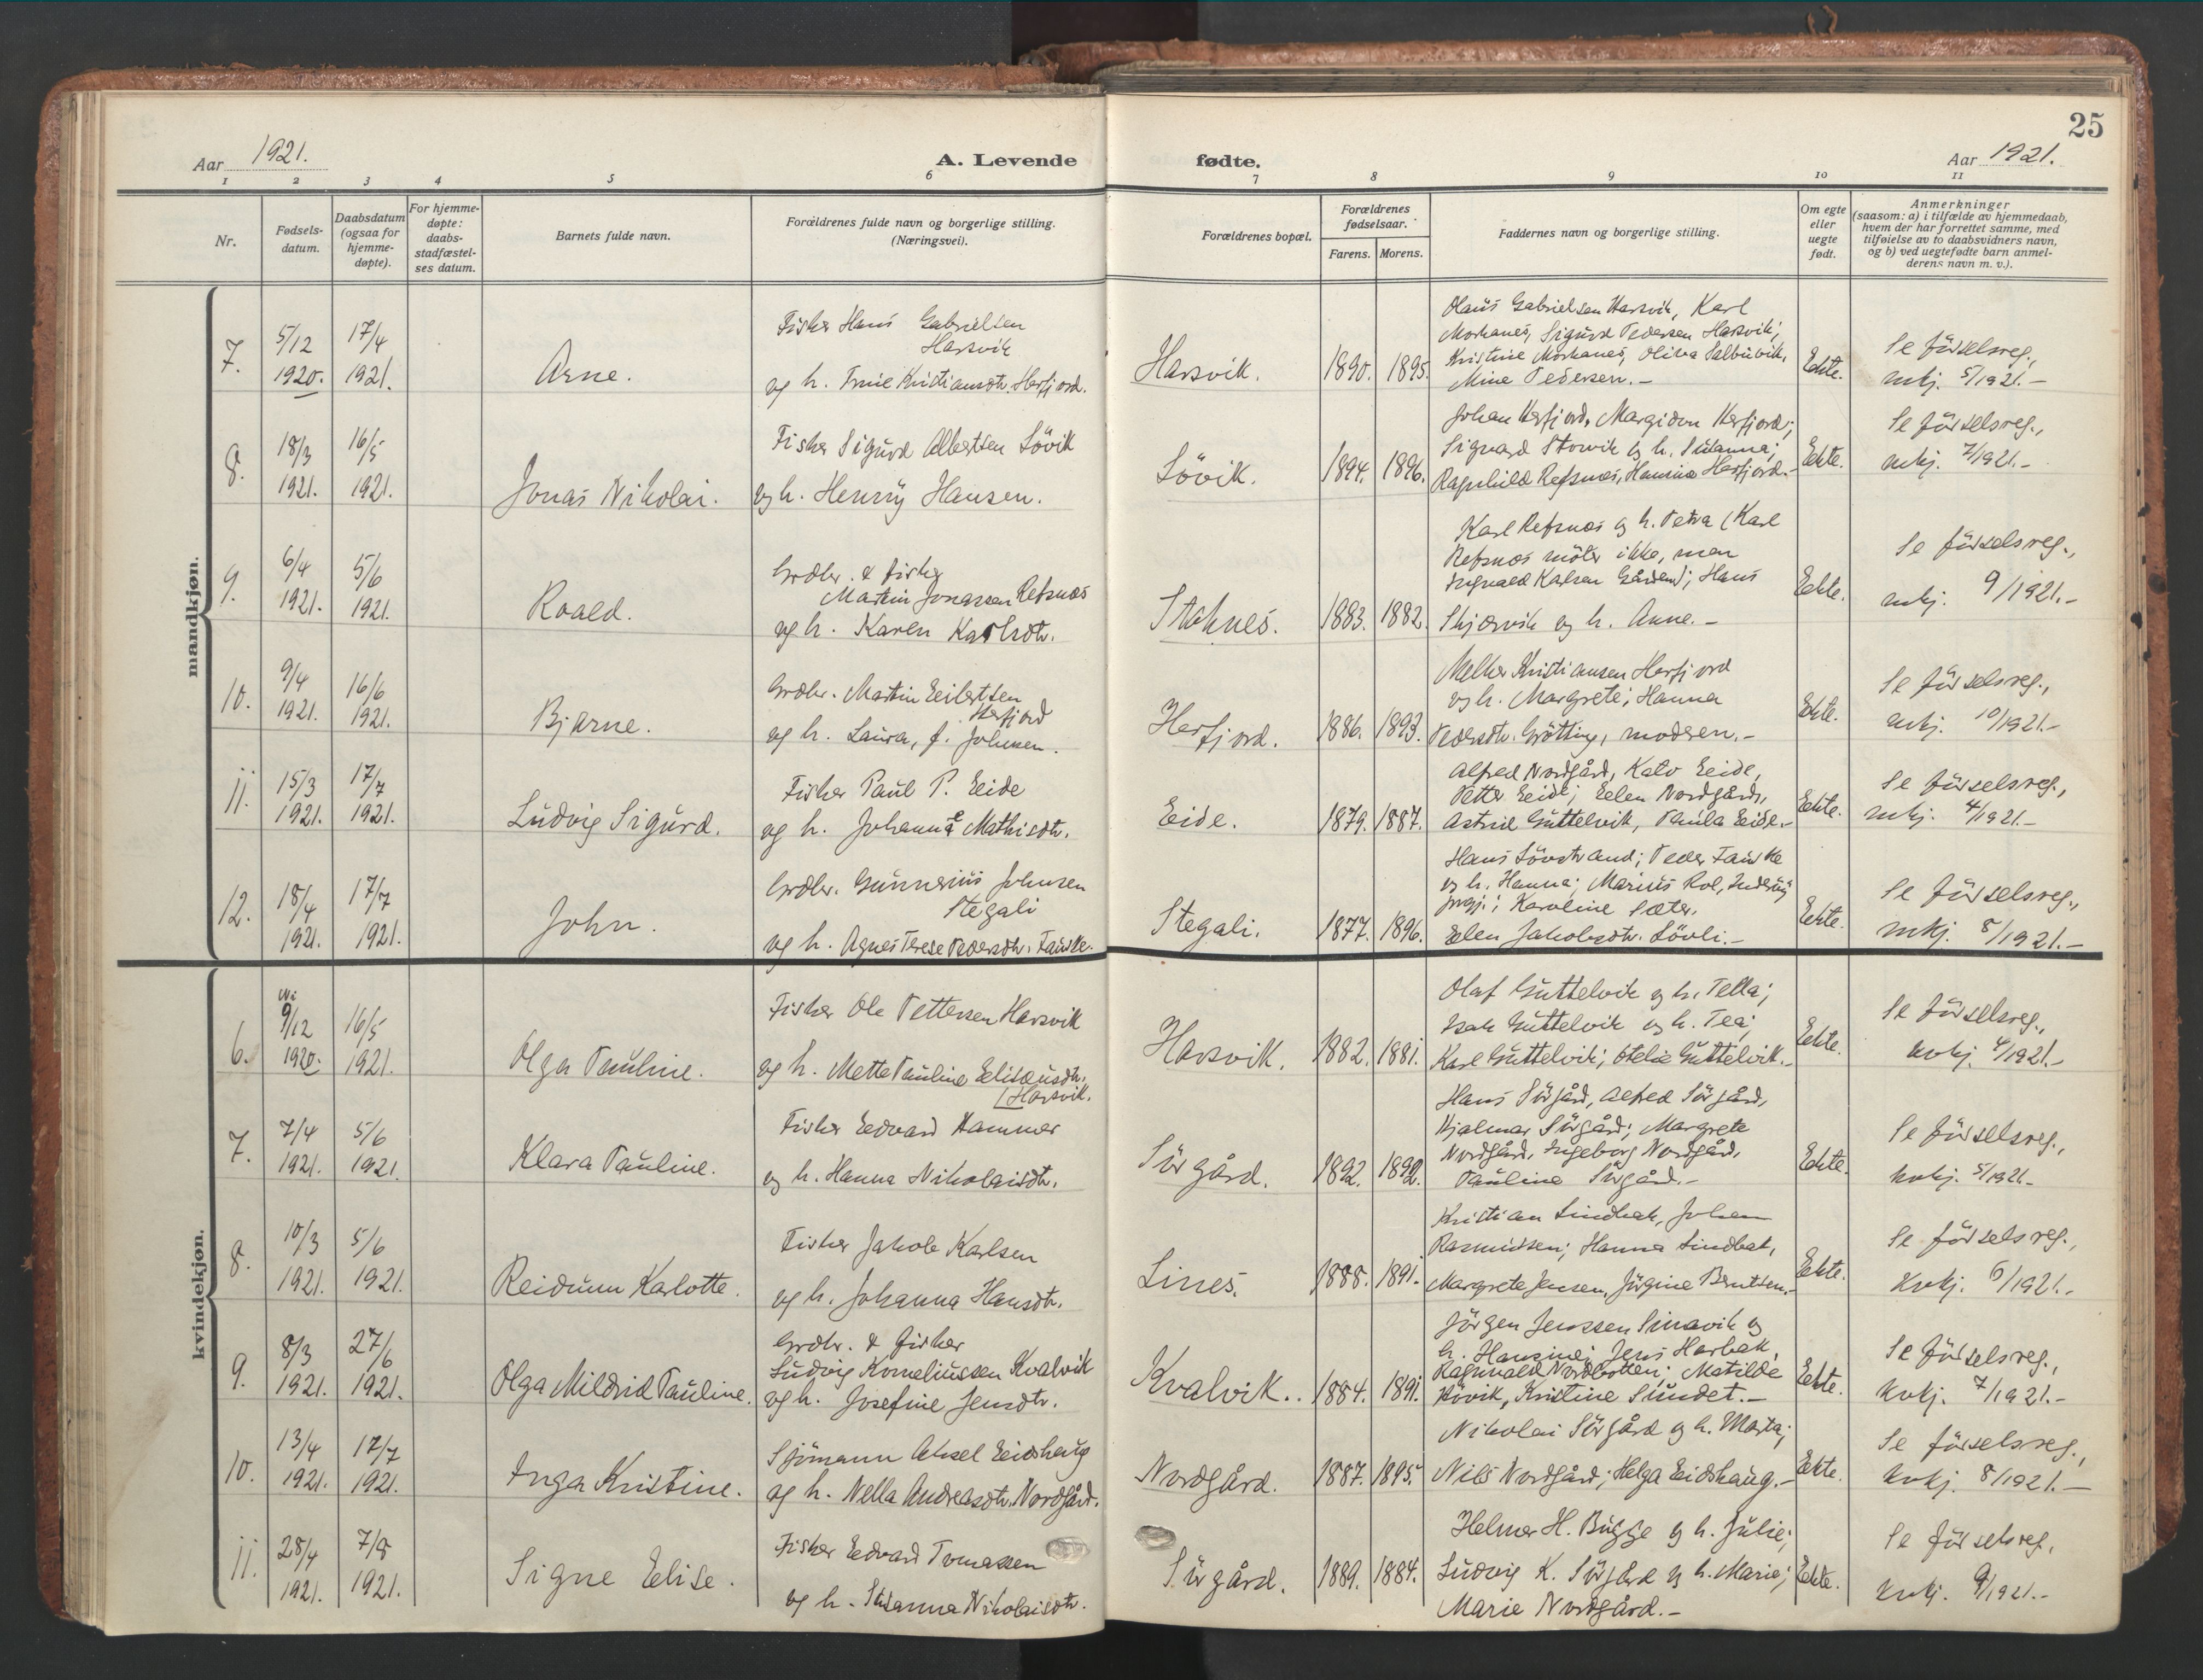 25
Aar 1921.
A. Levende fødte.
Aar 1921.
1 2 3 4 5 6 7 8 9 10 11
Nr.
Fødsels-
datum.
Daabsdatum
(ogsaa for
hjemme-
døpte).
For hjemme-
døpte:
daabs-
stadfæstel-
ses datum.
Barnets fulde navn.
Forældrenes fulde navn og borgerlige stilling.
(Næringsvei).
Forældrenes bopæl.
Forældrenes
fødselsaar.
Farens. Morens.
Faddernes navn og borgerlige stilling.
Om egte
eller
uegte
født.
Anmerkninger
(saasom: a) i tilfælde av hjemmedaab,
hvem der har forrettet samme, med
tilføielse av to daabsvidners navn,
og b) ved uegtefødte barn anmel-
derens navn m. v.).
mandkjøn.
7.
5/12
1920.
17/4
1921.
Arne.
Fisker Hans Gabrielsen
Harsvik
og h. Kristiansdtr. Herfjord.
Harsvik.
1890. 1895.
Olaus Gabrielsen Harsvik, Karl
Morkanes, Sigurd Pedersen Harsvik;
Kristine Morkanes, Oliva Salbuvik,
Mine Pedersen.-
Ekte.
Se födselsreg.,
mkj. 5/1921.-
8.
18/3
1921.
16/5
1921.
Jonas Nikolai.
Fisker Sigurd Albertsen Lövik
og h. Henny Hansen.
Lövik.
1894. 1896.
Johan Herfjord, Margidon Herfjord;
Sigvard Storvik og h. Susanna;
Ragnhild Refsnes, Hanna Herfjord.-
Ekte.
Se födselsreg.,
mkj. 7/1921.-
9.
6/4
1921.
5/6
1921.
Roald.
Grdbr. & fisker
Martin Jonassen Refsnes
og h. Karen Karlsdtr.
Stoknes.
1883. 1882.
Karl Refsnes og h. Petra (Karl
Refsnes möter ikke, men
Ingvald Karlsen Gården); Hans
Skjærvik og h. Anne.-
Ekte.
Se födselsreg.,
mkj. 9/1921.-
10.
9/4
1921.
16/6
1921.
Bjarne.
Grdbr. Martin Eilertsen
Herfjord
og h. Laura, f. Johnsen.
Herfjord.
1886. 1893.
Melker Kristiansen Herfjord
og h. Margrete; Hanna
Pedersdtr. Grötting, moderen.-
Ekte.
Se födselsreg.,
mkj. 10/1921.-
11.
15/3
1921.
17/7
1921.
Ludvig Sigurd.
Fisker Paul P. Eide
og h. Johanna Mathisdtr.
Eide.
1879. 1887.
Alfred Nordgård, Kato Eide,
Petter Eide; Elen Nordgård,
Astrid Guttelvik, Paula Eide.-
Ekte.
Se födselsreg.,
mkj. 4/1921.-
12.
18/4
1921.
17/7
1921.
John.
Grdbr. Gunnerius Johnsen
Stegali
og h. Agnes Terese Pedersdtr. Fauske.
Stegali.
1877. 1896.
Hans Lövstrand; Peder Fauske
og h. Hanna; Marius Rol, Inderöy
prgj.; Karoline Sæter,
Elen Jakobsdtr. Lövli.-
Ekte.
Se födselsreg.,
mkj. 8/1921.-
kvindekjøn.
6.
9/12
1920.
16/5
1921.
Olga Pauline.
Fisker Ole Pettersen Harsvik
og h. Mette Pauline Eliseusdtr.
(Harsvik.
Harsvik.
1882. 1881.
Olaf Guttelvik og h. Pella;
Isak Guttelvik og h. Tea;
Karl Guttelvik; Otelie Guttelvik.-
Ekte.
Se födselsreg.,
kvkj. 4/1921.-
7.
7/4
1921.
5/6
1921.
Klara Pauline.
Fisker Edvard Hammer
og h. Hanna Nikolaisdtr.
Sörgård.
1892. 1892.
Hans Sörgård, Alfred Sörgård,
Hjalmar Sörgård; Margrete
Nordgård, Ingeborg Nordgård,
Pauline Sörgård.-
Ekte.
Se födselsreg.,
kvkj. 5/1921.-
8.
10/3
1921.
5/6
1921.
Reidunn Karlotte.
Fisker Jakob Karlsen
og h. Johanna Hansdtr.
Lines.
1888. 1891.
Kristian Lindbak, Johan
Rasmussen; Hanna Lindbak,
Margrete Jensen, Jörgine Berntsen.-
Ekte.
Se födselsreg.,
kvkj. 6/1921.-
9.
8/3
1921.
27/6
1921.
Olga Mildrid Pauline.
Grdbr. & fisker
Ludvig Korneliussen Kvalvik
og h. Josefine Jensdtr.
Kvalvik.
1884. 1891.
Jörgen Jenssen Sumavik og
h. Hansine; Jens Harbak,
Ragnvald Nordbotten; Matilde
Hövik, Kristine Sundet.-
Ekte.
Se födselsreg.,
kvkj. 7/1921.-
10.
13/4
1921.
17/7
1921.
Inga Kristine.
Sjömann Aksel Eidshaug
og h. Nella Andreasdtr. Nordgård.
Nordgård.
1887. 1895.
Nikolai Sörgård og h. Marta;
Nils Nordgård; Helga Eidshaug.-
Ekte.
Se födselsreg.,
kvkj. 8/1921.-
11.
28/4
1921.
7/8
1921.
Signe Elise.
Fisker Edvard Tomassen
og h. Susanna Nikolaisdtr.
Sörgård.
1889. 1884.
Helmer H. Bugge og h. Julie;
Ludvig K. Sörgård og h. Marie;
Marie Nordgård.-
Ekte.
Se födselsreg.,
kvkj. 9/1921.-